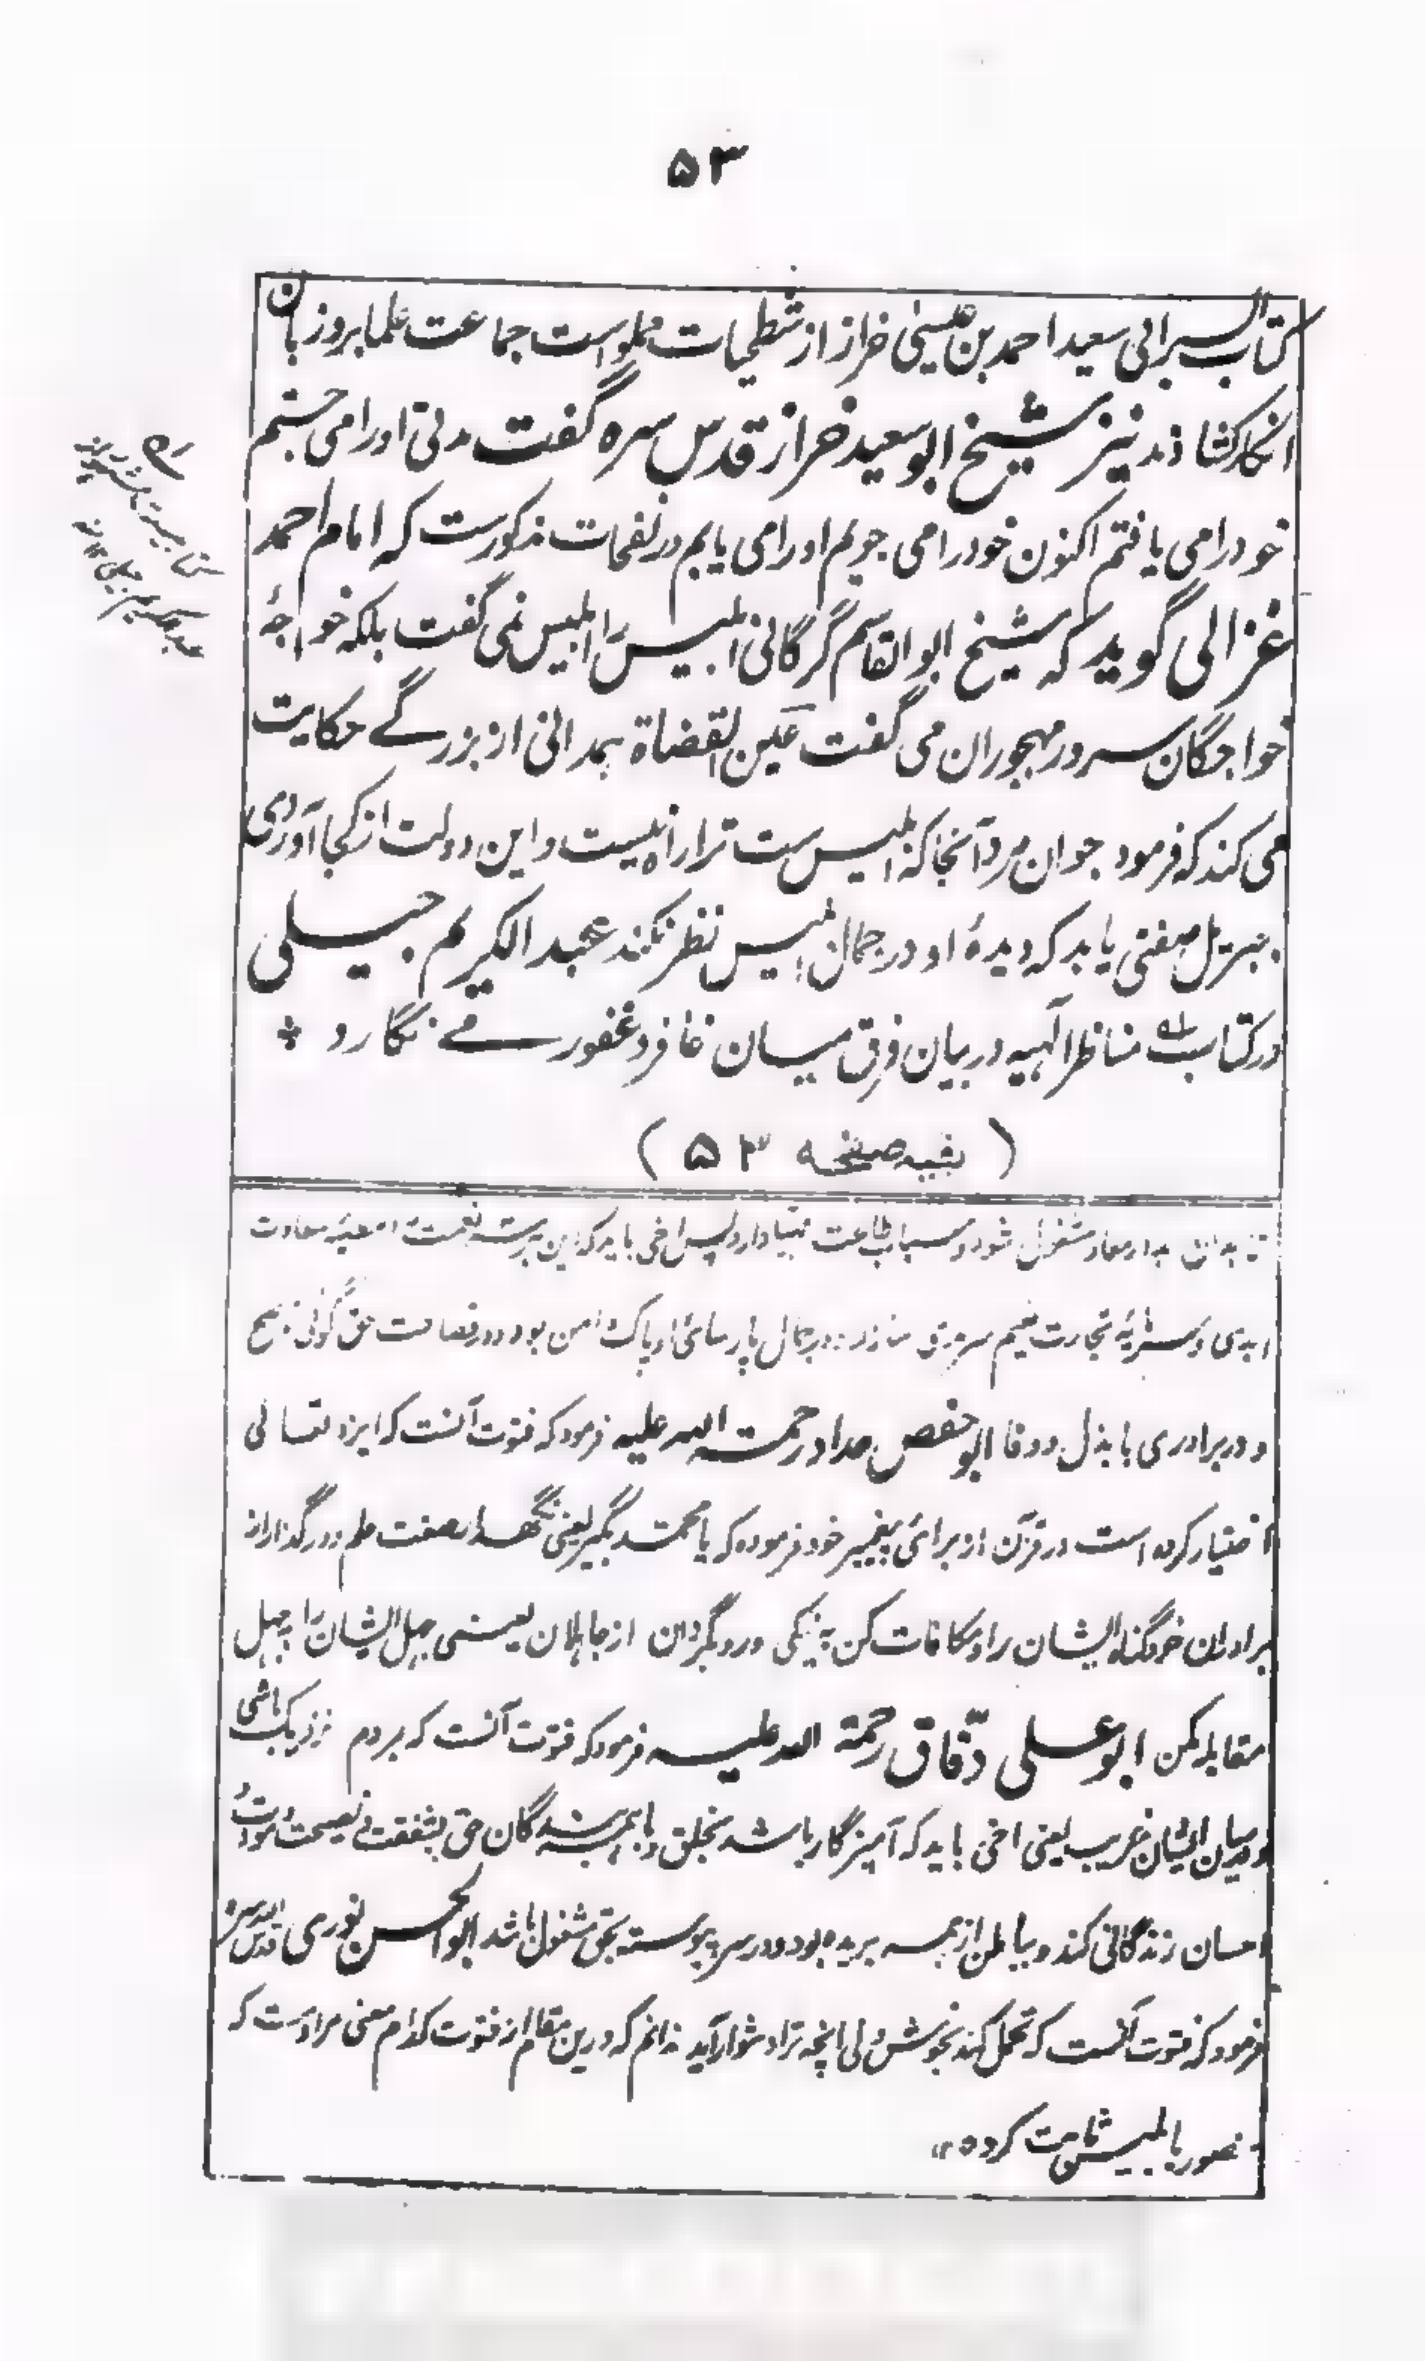 ۵۳
کتاب السر ابی سعید احمد بن عیسیٰ خراز از شطحیات مملو است جماعت علما برو زبان
انکار کشادند نیز شیخ ابو سعید خراز قدس سره گفت مدتی او را می جستم
خود را می یافتم اکنون خود را می جویم او را می یابم در نفحات مذکورست که امام احمد
غزالی گوید که شیخ ابو القاسم گرگانی ابلیس را ابلیس نمی گفت بلکه خواجهٔ
خواجگان سرور مهجوران می گفت عین القضاة همدانی از بزرگے حکایت
می کند که فرمود جوان مرد آنجا که ابلیس ست ترا راه نیست و این دولت از کجا آوردی
جبرئیل صفتی باید که دیدهٔ او در جمال ابلیس نظر کند عبد الکریم جیلی
در کتاب مناظر الٰهیه در بیان فرق میان غافر و غفور مے نگارد
( بقیه صفحه ۵۳ )
مشغول شود و اسباب طاعت مهیا دارد پس اخی باید که این
ابدی و تجارت در جمال پارسائی او پاک دامن بود و در حق گوئی
و در برادری با بذل و وفا ابو حفص حداد رحمة الله علیه فرمود که فتوت آنست که ایزد تعالی
اختیار کرده است در قرآن از برائی پیغمبر خود فرموده که یا محمد بگیر یعنی نگهدار صفت حلم و در گذار از
برادران خود گناه ایشان را و مکافات کن به نیکی و رو بگردان از جاهلان یعنی جهل ایشان را بجهل
مقابله مکن ابو علی دقاق رحمة الله علیه فرمود که فتوت آنست که بردم نزدیک باشی
و در میان ایشان غریب یعنی اخی باید که آمیزگار باشد بخلق و با همه بندگان حق بشفقت و نصیحت و
احسان زندگانی کند و بباطن از همه بریده بود و در سر پیوسته بحق مشغول باشد ابو الحسن نوری قدس الله سره
فرمود که فتوت آنست که تحمل کند بخوش دلی آنچه ترا دشوار آید ندانم که درین مقام از فتوت کدام معنی مراد ست که
منصور با ابلیس ثابت کرده ۱۲